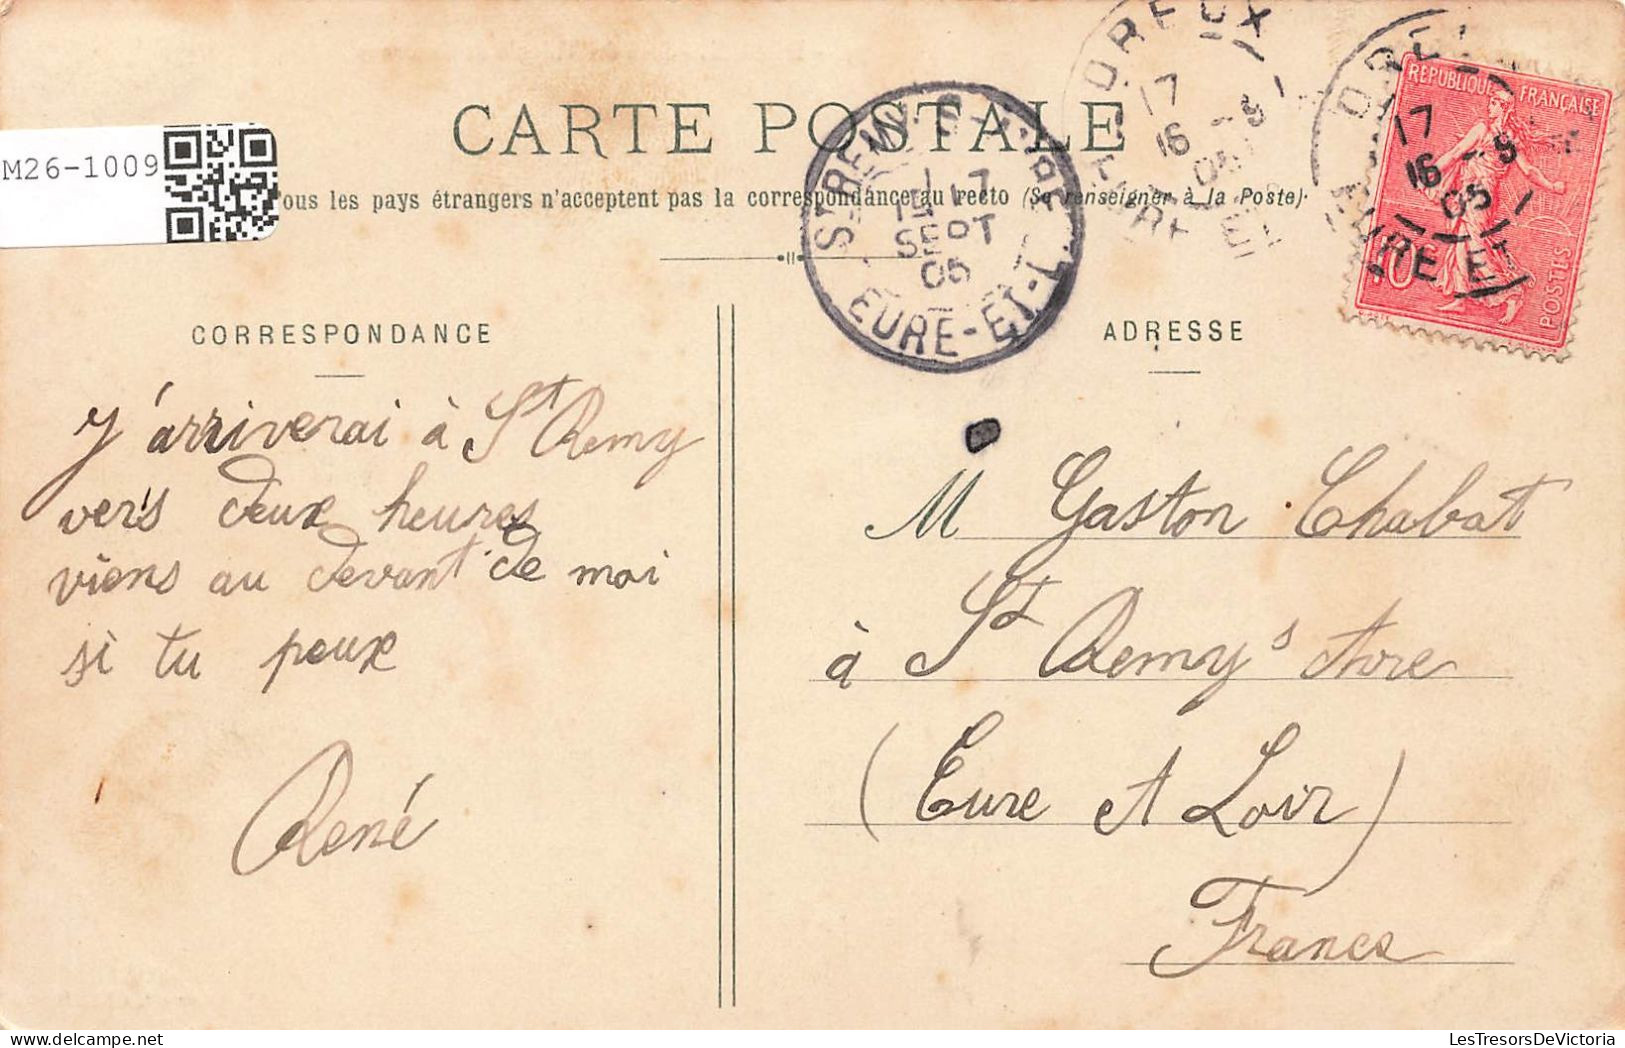 M26-1009
CARTE POSTALE
ous les pays étrangers n'acceptent pas la correspondance au recto (Se renseigner à la Poste).
DREUX
17
16 - 9
05
EURE ET
ST REMY-S-AVRE
17
SEPT
05
EURE-ET-L.
DREUX
17
16 - 9
05
EURE ET
REPUBLIQUE FRANÇAISE
10c
POSTES
CORRESPONDANCE
J'arriverai à St Remy
vers deux heures
viens au devant de moi
si tu peux
René
ADRESSE
M Gaston Chabat
à St Remy s Avre
(Eure et Loir)
France
LesTresorsDeVictoria